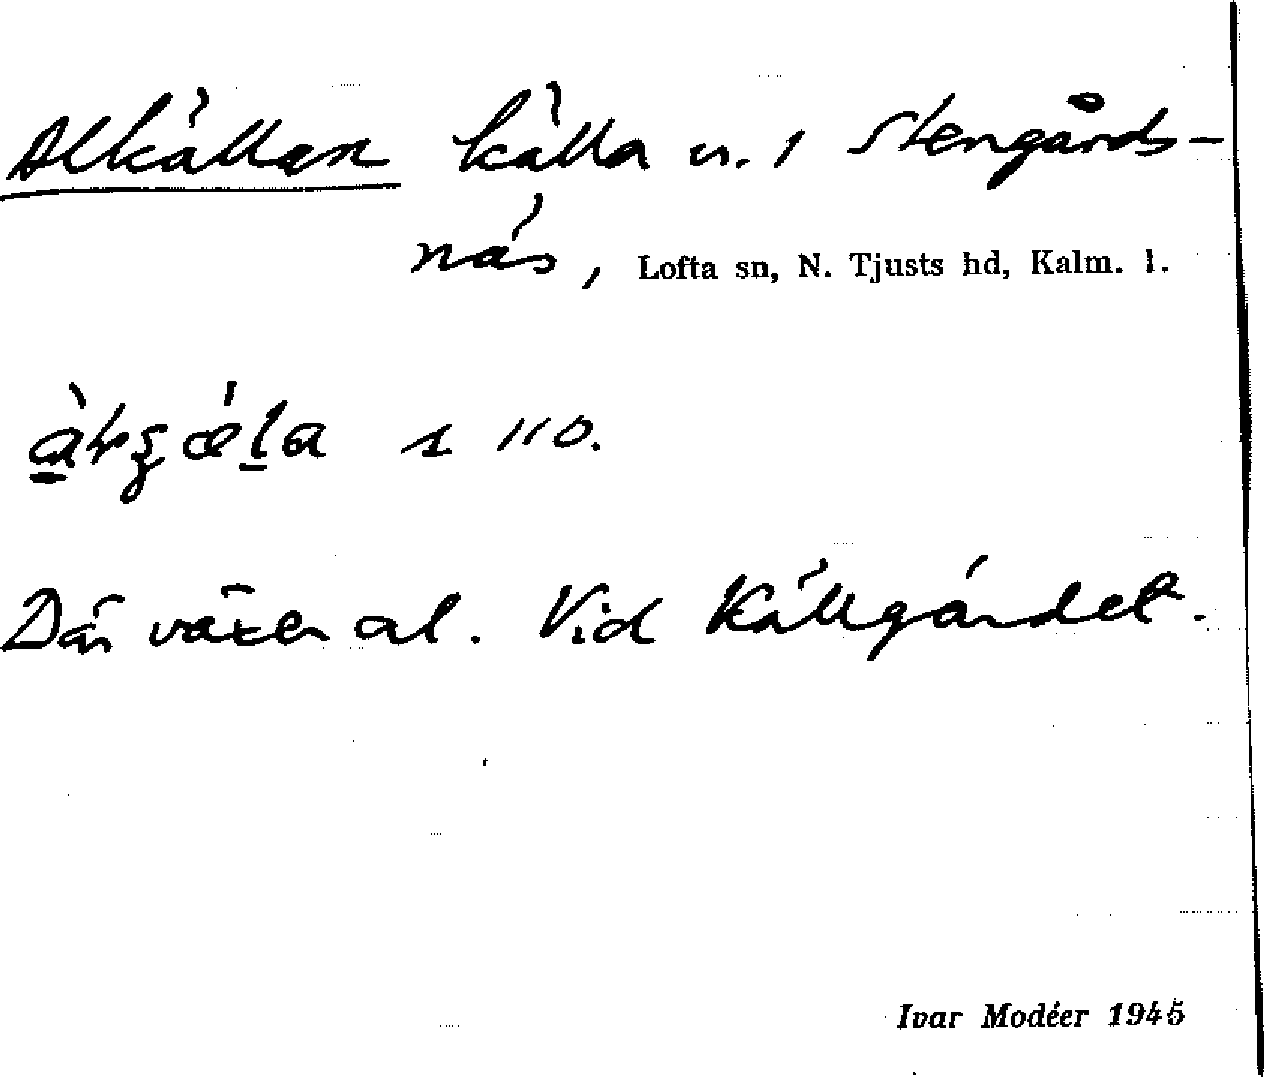 Alkällan källa nr. 1 Stengårds-
näs, Lofta sn, N. Tjusts hd, Kalm. l.
s 110.
Där växer al. Vid Källgärdet.
Ivar Modéer 1945